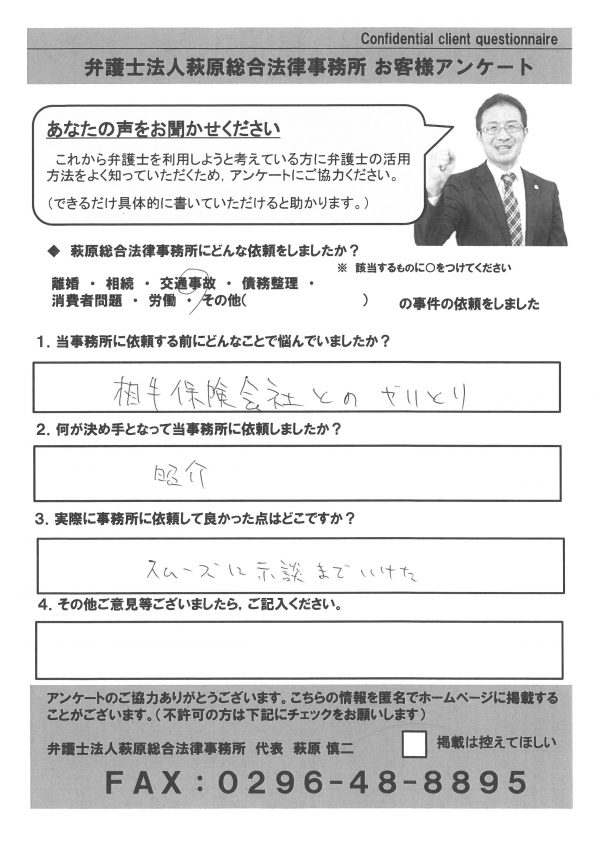 Confidential client questionnaire
弁護士法人萩原総合法律事務所 お客様アンケート
あなたの声をお聞かせください
これから弁護士を利用しようと考えている方に弁護士の活用
方法をよく知っていただくため,アンケートにご協力ください。
(できるだけ具体的に書いていただけると助かります。)
◆ 萩原総合法律事務所にどんな依頼をしましたか?
※ 該当するものに○をつけてください
離婚 ・ 相続 ・ 交通事故 ・ 債務整理 ・
消費者問題 ・ 労働 ・ その他( ) の事件の依頼をしました
1.当事務所に依頼する前にどんなことで悩んでいましたか?
相手保険会社との やりとり
2.何が決め手となって当事務所に依頼しましたか?
紹介
3.実際に事務所に依頼して良かった点はどこですか?
スムーズに示談までいけた
4.その他ご意見等ございましたら,ご記入ください。
アンケートのご協力ありがとうございます。こちらの情報を匿名でホームページに掲載する
ことがございます。(不許可の方は下記にチェックをお願いします)
弁護士法人萩原総合法律事務所 代表 萩原 慎二
掲載は控えてほしい
FAX:0296-48-8895